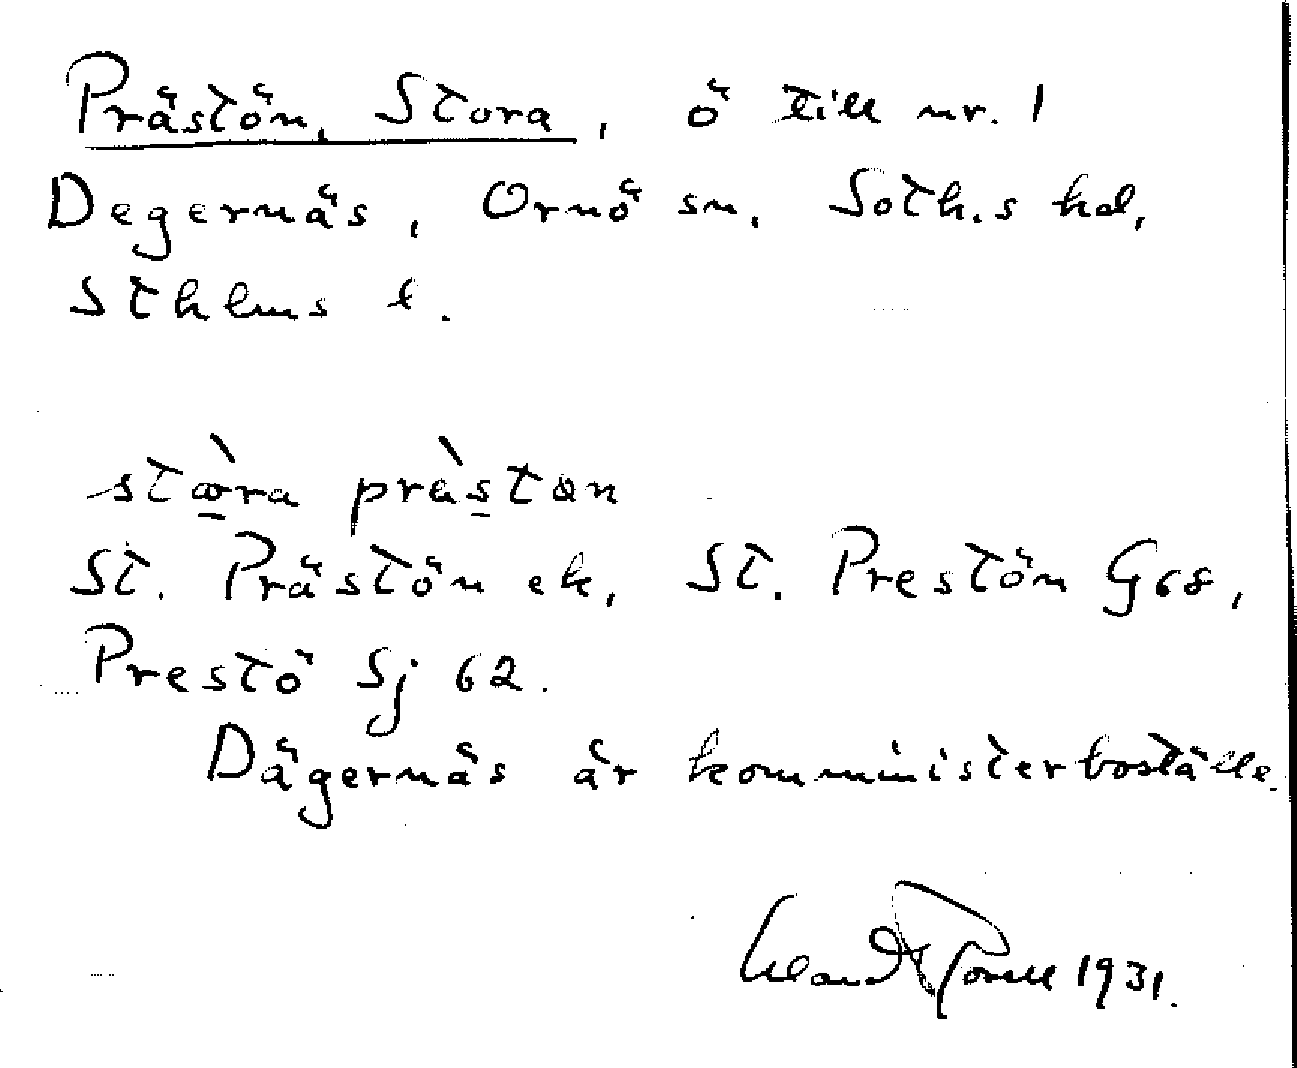 Prästön, Stora, ö till nr. 1
Degernäs, Ornö sn, Soth.s hd,
Sthlms l.
stɷ̀ra prästɷn
St. Prästön ek, St. Prestön G68,
Prestö Sj 62.
Dägernäs är komministerboställe.
1931.